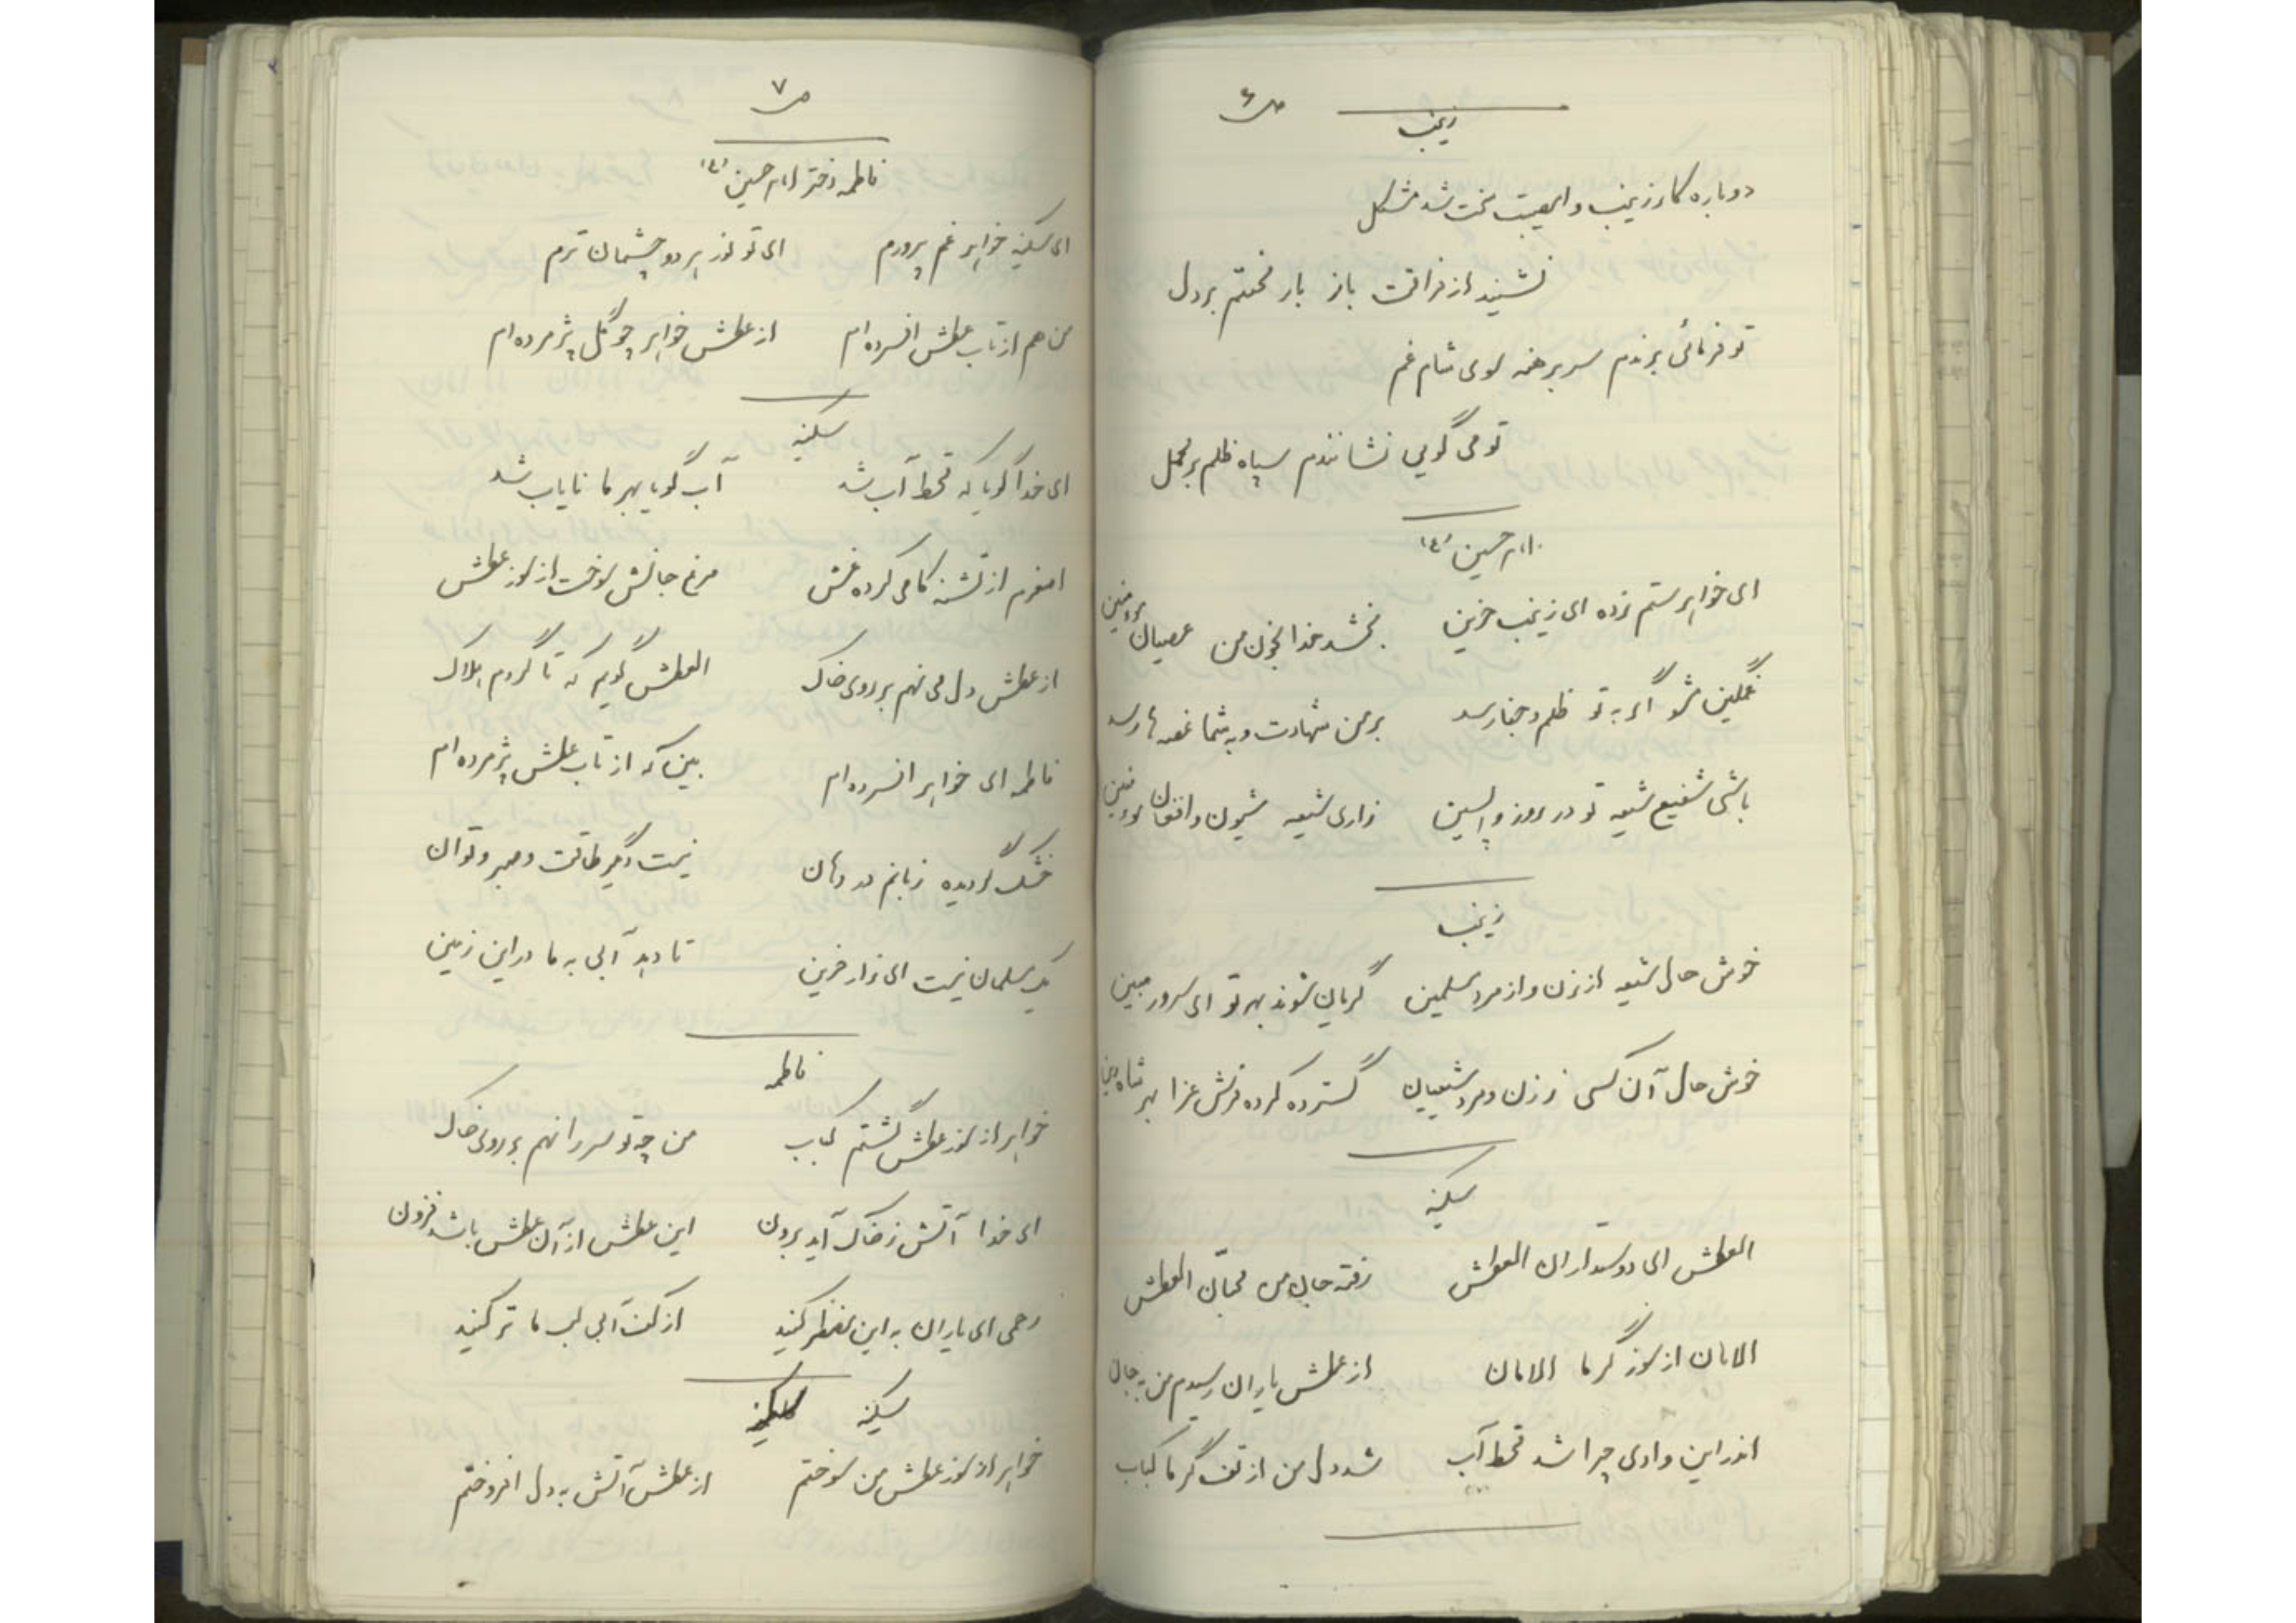 ص ۶
زینب
دوباره کار زینب وامصیبت سخت شد مشکل
نشیند از فراقت باز بار محنتم بر دل
تو فرمائی برندم سر برهنه سوی شام غم
تو می گویی نشانندم سپاه ظلم بر محمل
امام حسین (ع)
ای خواهر ستم زده ای زینب حزین بخشد خدا بخون من عصیان مومنین
غمگین مشو اگر به تو ظلم و جفا رسد بر من شهادت و به شما غصه ها رسد
باشی شفیع شیعه تو در روز واپسین زاری شیعه شیون و افغان مومنین
زینب
خوش حال شیعه از زن و از مرد مسلمین گریان شوند بهر تو ای سرور مبین
خوش حال آن کسی ز زن و مرد شیعیان گسترده کرده فرش عزا بهر شاه دین
سکینه
العطش ای دوستداران العطش رفته جان من محبّان العطش
الامان از سوز گرما الامان از عطش یاران رسیدم من به جان
اندر این وادی چرا شد قحط آب شد دل من از تف گرما کباب
ص ۷
فاطمه دختر امام حسین (ع)
ای سکینه خواهر غم پرورم ای تو نور هر دو چشمان ترم
من هم از تاب عطش افسرده ام از عطش خواهر چو گل پژمرده ام
سکینه
ای خدا گویا که قحط آب شد آب گویا بهر ما نایاب شد
اصغرم از تشنه کامی کرده غش مرغ جانش سوخت از سوز عطش
از عطش دل می نهم بر روی خاک العطش گویم که تا گردم هلاک
فاطمه ای خواهر افسرده ام بین که از تاب عطش پژمرده ام
خشک گردیده زبانم در دهان نیست دیگر طاقت و صبر و توان
یک مسلمان نیست ای زار حزین تا دهد آبی به ما در این زمین
فاطمه
خواهر از سوز عطش گشتم کباب من چه تو سر را نهم بر روی خاک
ای خدا آتش ز خاک آید برون این عطش از آن عطش باشد فزون
رحمی ای یاران به این مضطر کنید از کف آبی لب ما تر کنید
سکینه
خواهر از سوز عطش من سوختم از عطش آتش به دل افروختم